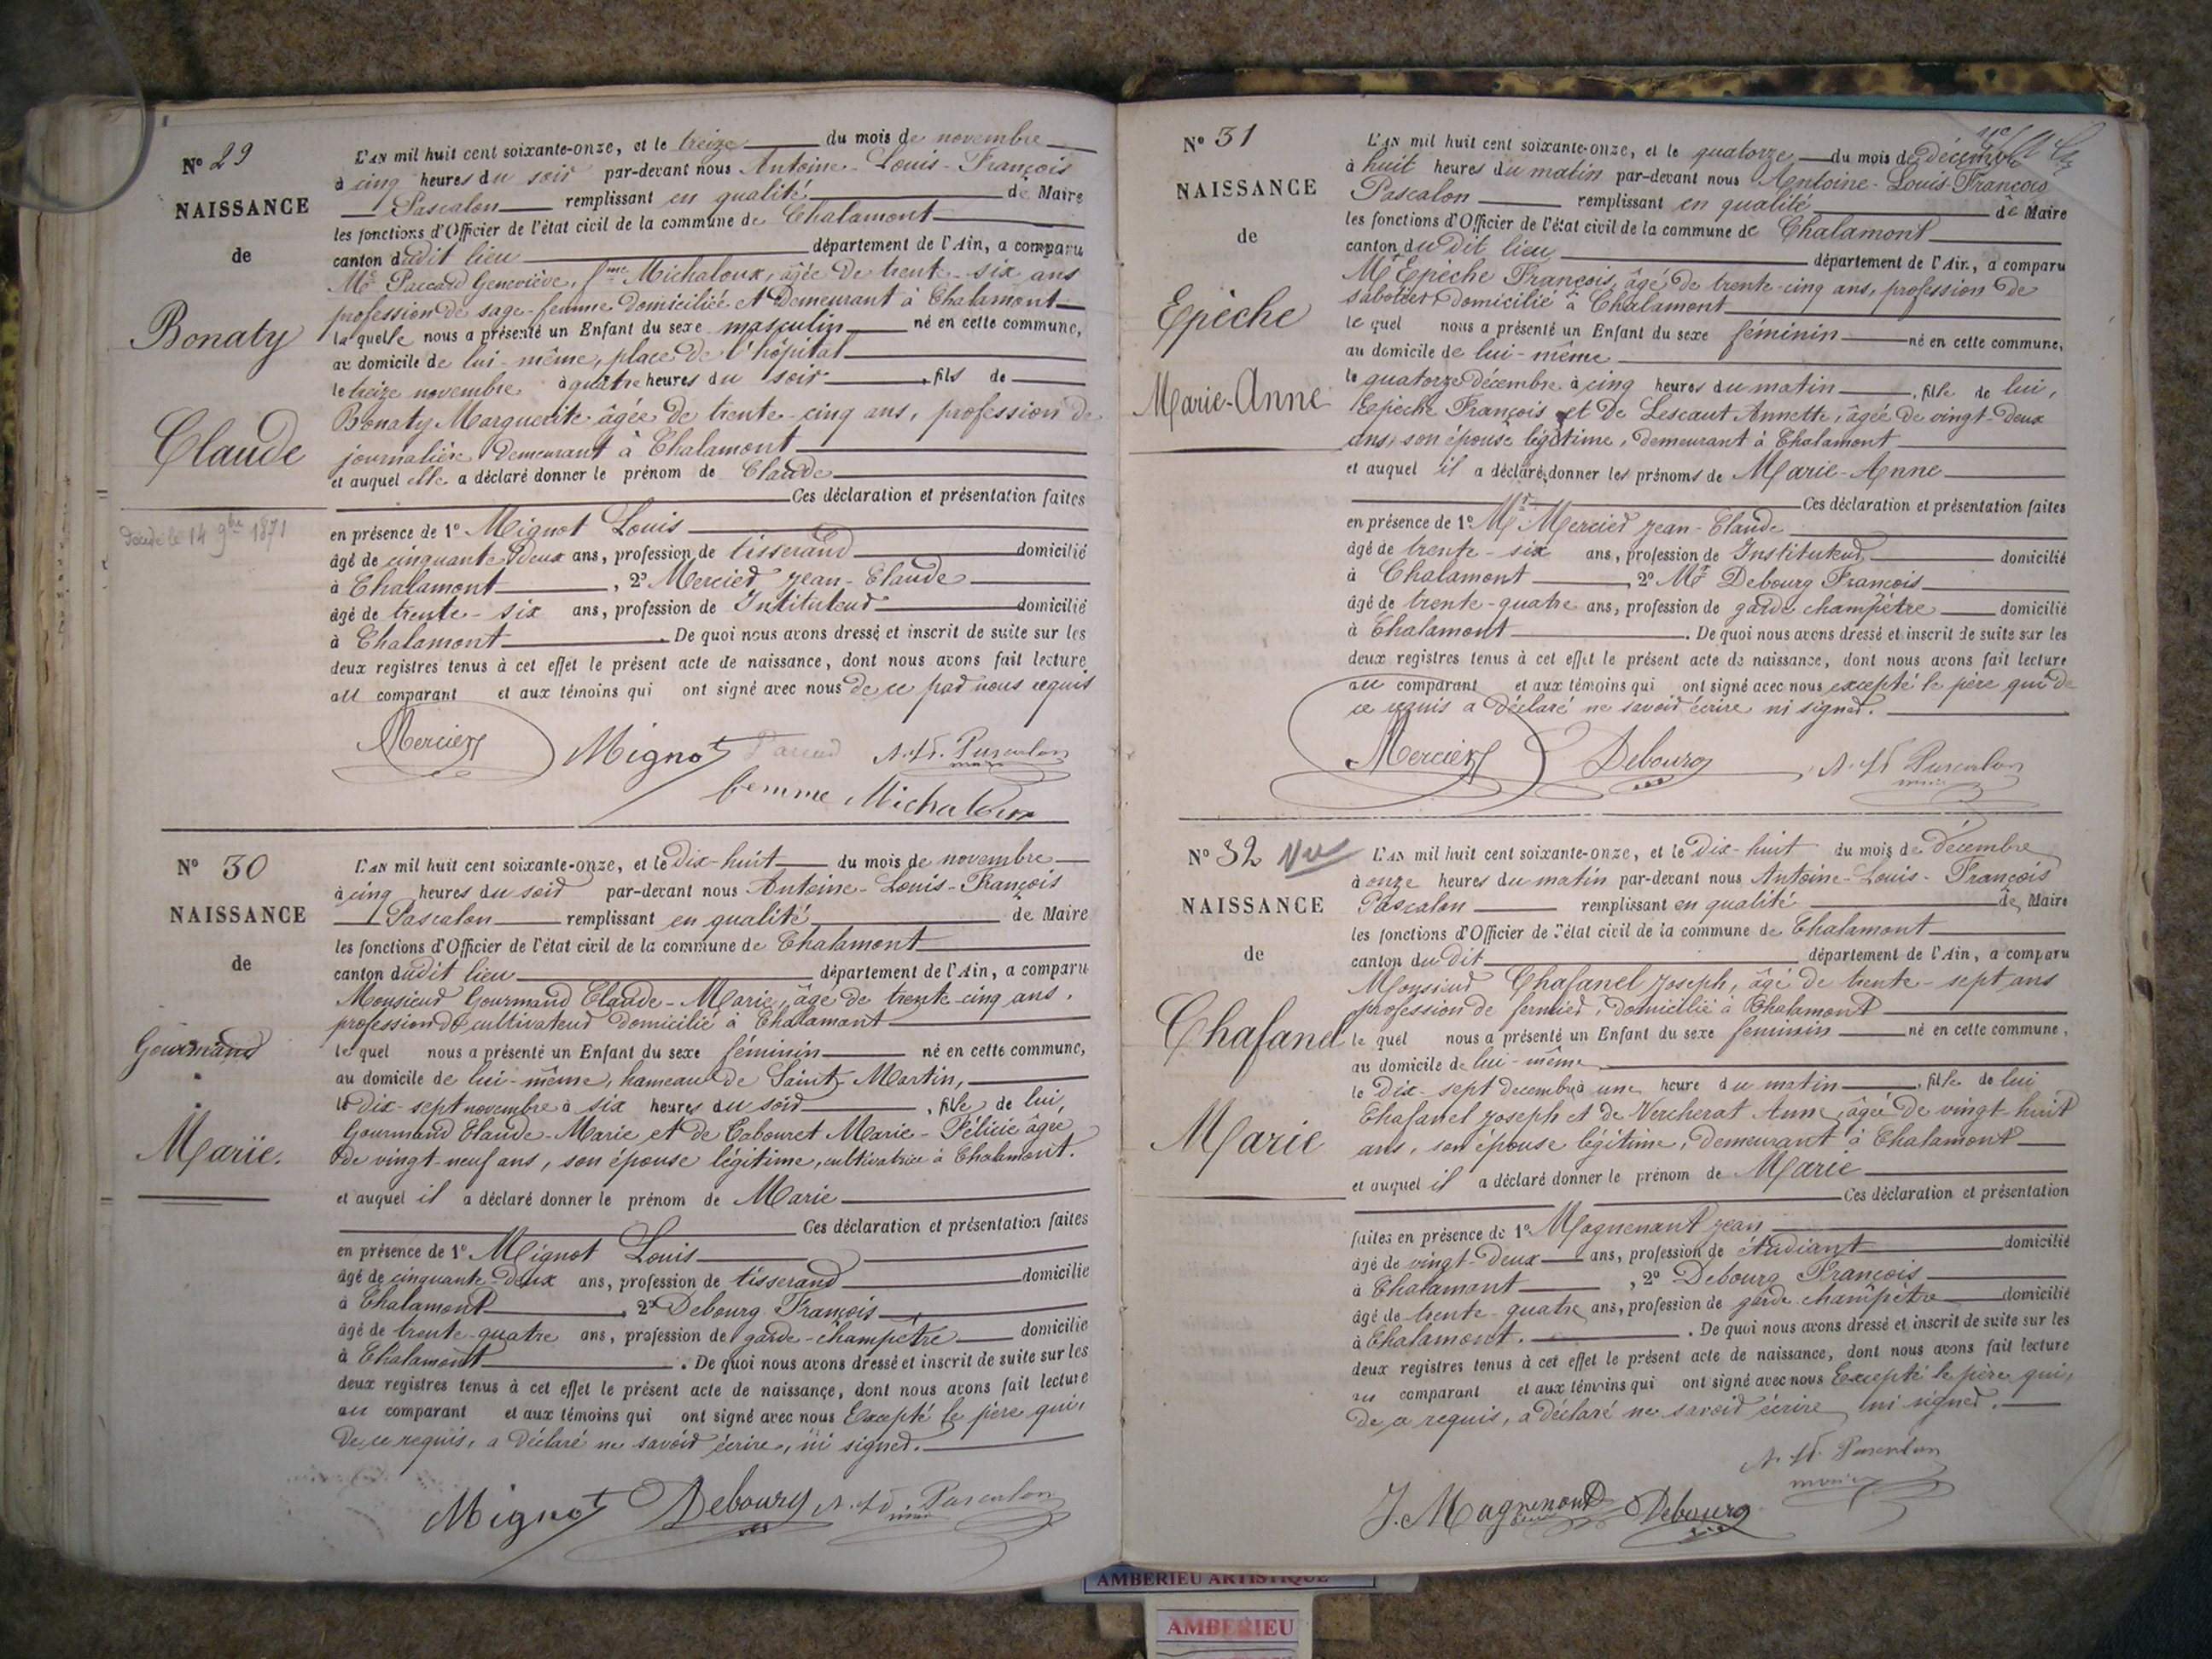 N° 29
NAISSANCE
de
Bonaty
Claude
Décédé le 14 9bre 1871
L'AN mil huit cent soixante-onze, et le treize du mois de novembre
à cinq heures du soir par-devant nous Antoine-Louis-François
Pascalon remplissant en qualité de Maire
les fonctions d'Officier de l'état civil de la commune de Chalamont
canton dudit lieu département de l'Ain, a comparu
Me Paccard Geneviève, fme Michaloux, âgée de trente-six ans
profession de sage-femme domiciliée et demeurant à Chalamont
laquelle nous a présenté un Enfant du sexe masculin né en cette commune,
au domicile de lui-même, place de l'hôpital
le treize novembre à quatre heures du soir, fils de
Bonaty Marguerite âgée de trente-cinq ans, profession de
journalière demeurant à Chalamont
et auquel elle a déclaré donner le prénom de Claude
Ces déclaration et présentation faites
en présence de 1° Mignot Louis
âgé de cinquante deux ans, profession de tisserand domicilié
à Chalamont, 2° Mercier Jean-Claude
âgé de trente-six ans, profession de Instituteur domicilié
à Chalamont. De quoi nous avons dressé et inscrit de suite sur les
deux registres tenus à cet effet le présent acte de naissance, dont nous avons fait lecture
au comparant et aux témoins qui ont signé avec nous de ce par nous requis
Mercier Mignot Paccard A. Ls. Pascalon
maire
femme Michaloux
N° 30
NAISSANCE
de
Gourmand
Marie.
L'AN mil huit cent soixante-onze, et le Dix-huit du mois de novembre
à cinq heures du soir par-devant nous Antoine-Louis-François
Pascalon remplissant en qualité de Maire
les fonctions d'Officier de l'état civil de la commune de Chalamont
canton dudit lieu département de l'Ain, a comparu
Monsieur Gourmand Claude-Marie, âgé de trente-cinq ans,
profession de cultivateur domicilié à Chalamont
lequel nous a présenté un Enfant du sexe féminin né en cette commune,
au domicile de lui-même, hameau de Saint-Martin,
le Dix-sept novembre à six heures du soir, fille de lui,
Gourmand Claude-Marie et de Cabouret Marie-Félicie âgée
de vingt-neuf ans, son épouse légitime, cultivatrice à Chalamont.
et auquel il a déclaré donner le prénom de Marie
Ces déclaration et présentation faites
en présence de 1° Mignot Louis
âgé de cinquante-deux ans, profession de tisserand domicilié
à Chalamont, 2° Debourg François
âgé de trente-quatre ans, profession de garde-champêtre domicilié
à Chalamont. De quoi nous avons dressé et inscrit de suite sur les
deux registres tenus à cet effet le présent acte de naissance, dont nous avons fait lecture
au comparant et aux témoins qui ont signé avec nous Excepté le père qui,
de ce requis, a déclaré ne savoir écrire, ni signer.
Mignot Debourg A. Ls. Pascalon
maire
N° 31
NAISSANCE
de
Epèche
Marie-Anne
L'AN mil huit cent soixante-onze, et le quatorze du mois de décembre
à huit heures du matin par-devant nous Antoine-Louis-François
Pascalon remplissant en qualité de Maire
les fonctions d'Officier de l'état civil de la commune de Chalamont
canton du dit lieu, département de l'Ain, a comparu
Mr Epèche François, âgé de trente-cinq ans, profession de
sabotier domicilié à Chalamont
lequel nous a présenté un Enfant du sexe féminin né en cette commune,
au domicile de lui-même
le quatorze décembre à cinq heures du matin, fille de lui,
Epèche François et de Lescaut Annette, âgée de vingt-deux
ans, son épouse légitime, demeurant à Chalamont
et auquel il a déclaré donner les prénoms de Marie-Anne
Ces déclaration et présentation faites
en présence de 1° Mr Mercier Jean-Claude
âgé de trente-six ans, profession de Instituteur domicilié
à Chalamont, 2° Mr Debourg François
âgé de trente-quatre ans, profession de garde champêtre domicilié
à Chalamont. De quoi nous avons dressé et inscrit de suite sur les
deux registres tenus à cet effet le présent acte de naissance, dont nous avons fait lecture
au comparant et aux témoins qui ont signé avec nous excepté le père qui de
ce requis a déclaré ne savoir écrire ni signer.
Mercier Debourg A. Ls Pascalon
maire
N° 32 Vu
NAISSANCE
de
Chafanel
Marie
L'AN mil huit cent soixante-onze, et le Dix-huit du mois de décembre
à onze heures du matin par-devant nous Antoine-Louis-François
Pascalon remplissant en qualité de Maire
les fonctions d'Officier de l'état civil de la commune de Chalamont
canton du dit département de l'Ain, a comparu
Monsieur Chafanel Joseph, âgé de trente-sept ans
profession de fermier, domicilié à Chalamont
lequel nous a présenté un Enfant du sexe féminin né en cette commune,
au domicile de lui-même
le Dix-sept decembre à une heure du matin, fille de lui
Chafanel Joseph et de Vercherat Anne, âgée de vingt-huit
ans, son épouse légitime, demeurant à Chalamont
et auquel il a déclaré donner le prénom de Marie
Ces déclaration et présentation
faites en présence de 1° Magnenant Jean
âgé de vingt-deux ans, profession de étudiant domicilié
à Chalamont, 2° Debourg François
âgé de trente-quatre ans, profession de garde-champêtre domicilié
à Chalamont. De quoi nous avons dressé et inscrit de suite sur les
deux registres tenus à cet effet le présent acte de naissance, dont nous avons fait lecture
au comparant et aux témoins qui ont signé avec nous Excepté le père qui,
de ce requis, a déclaré ne savoir écrire ni signer.
A. Ls. Pascalon
maire
J. Magnenand Debourg
AMBERIEU ARTISTIQUE
AMBERIEU